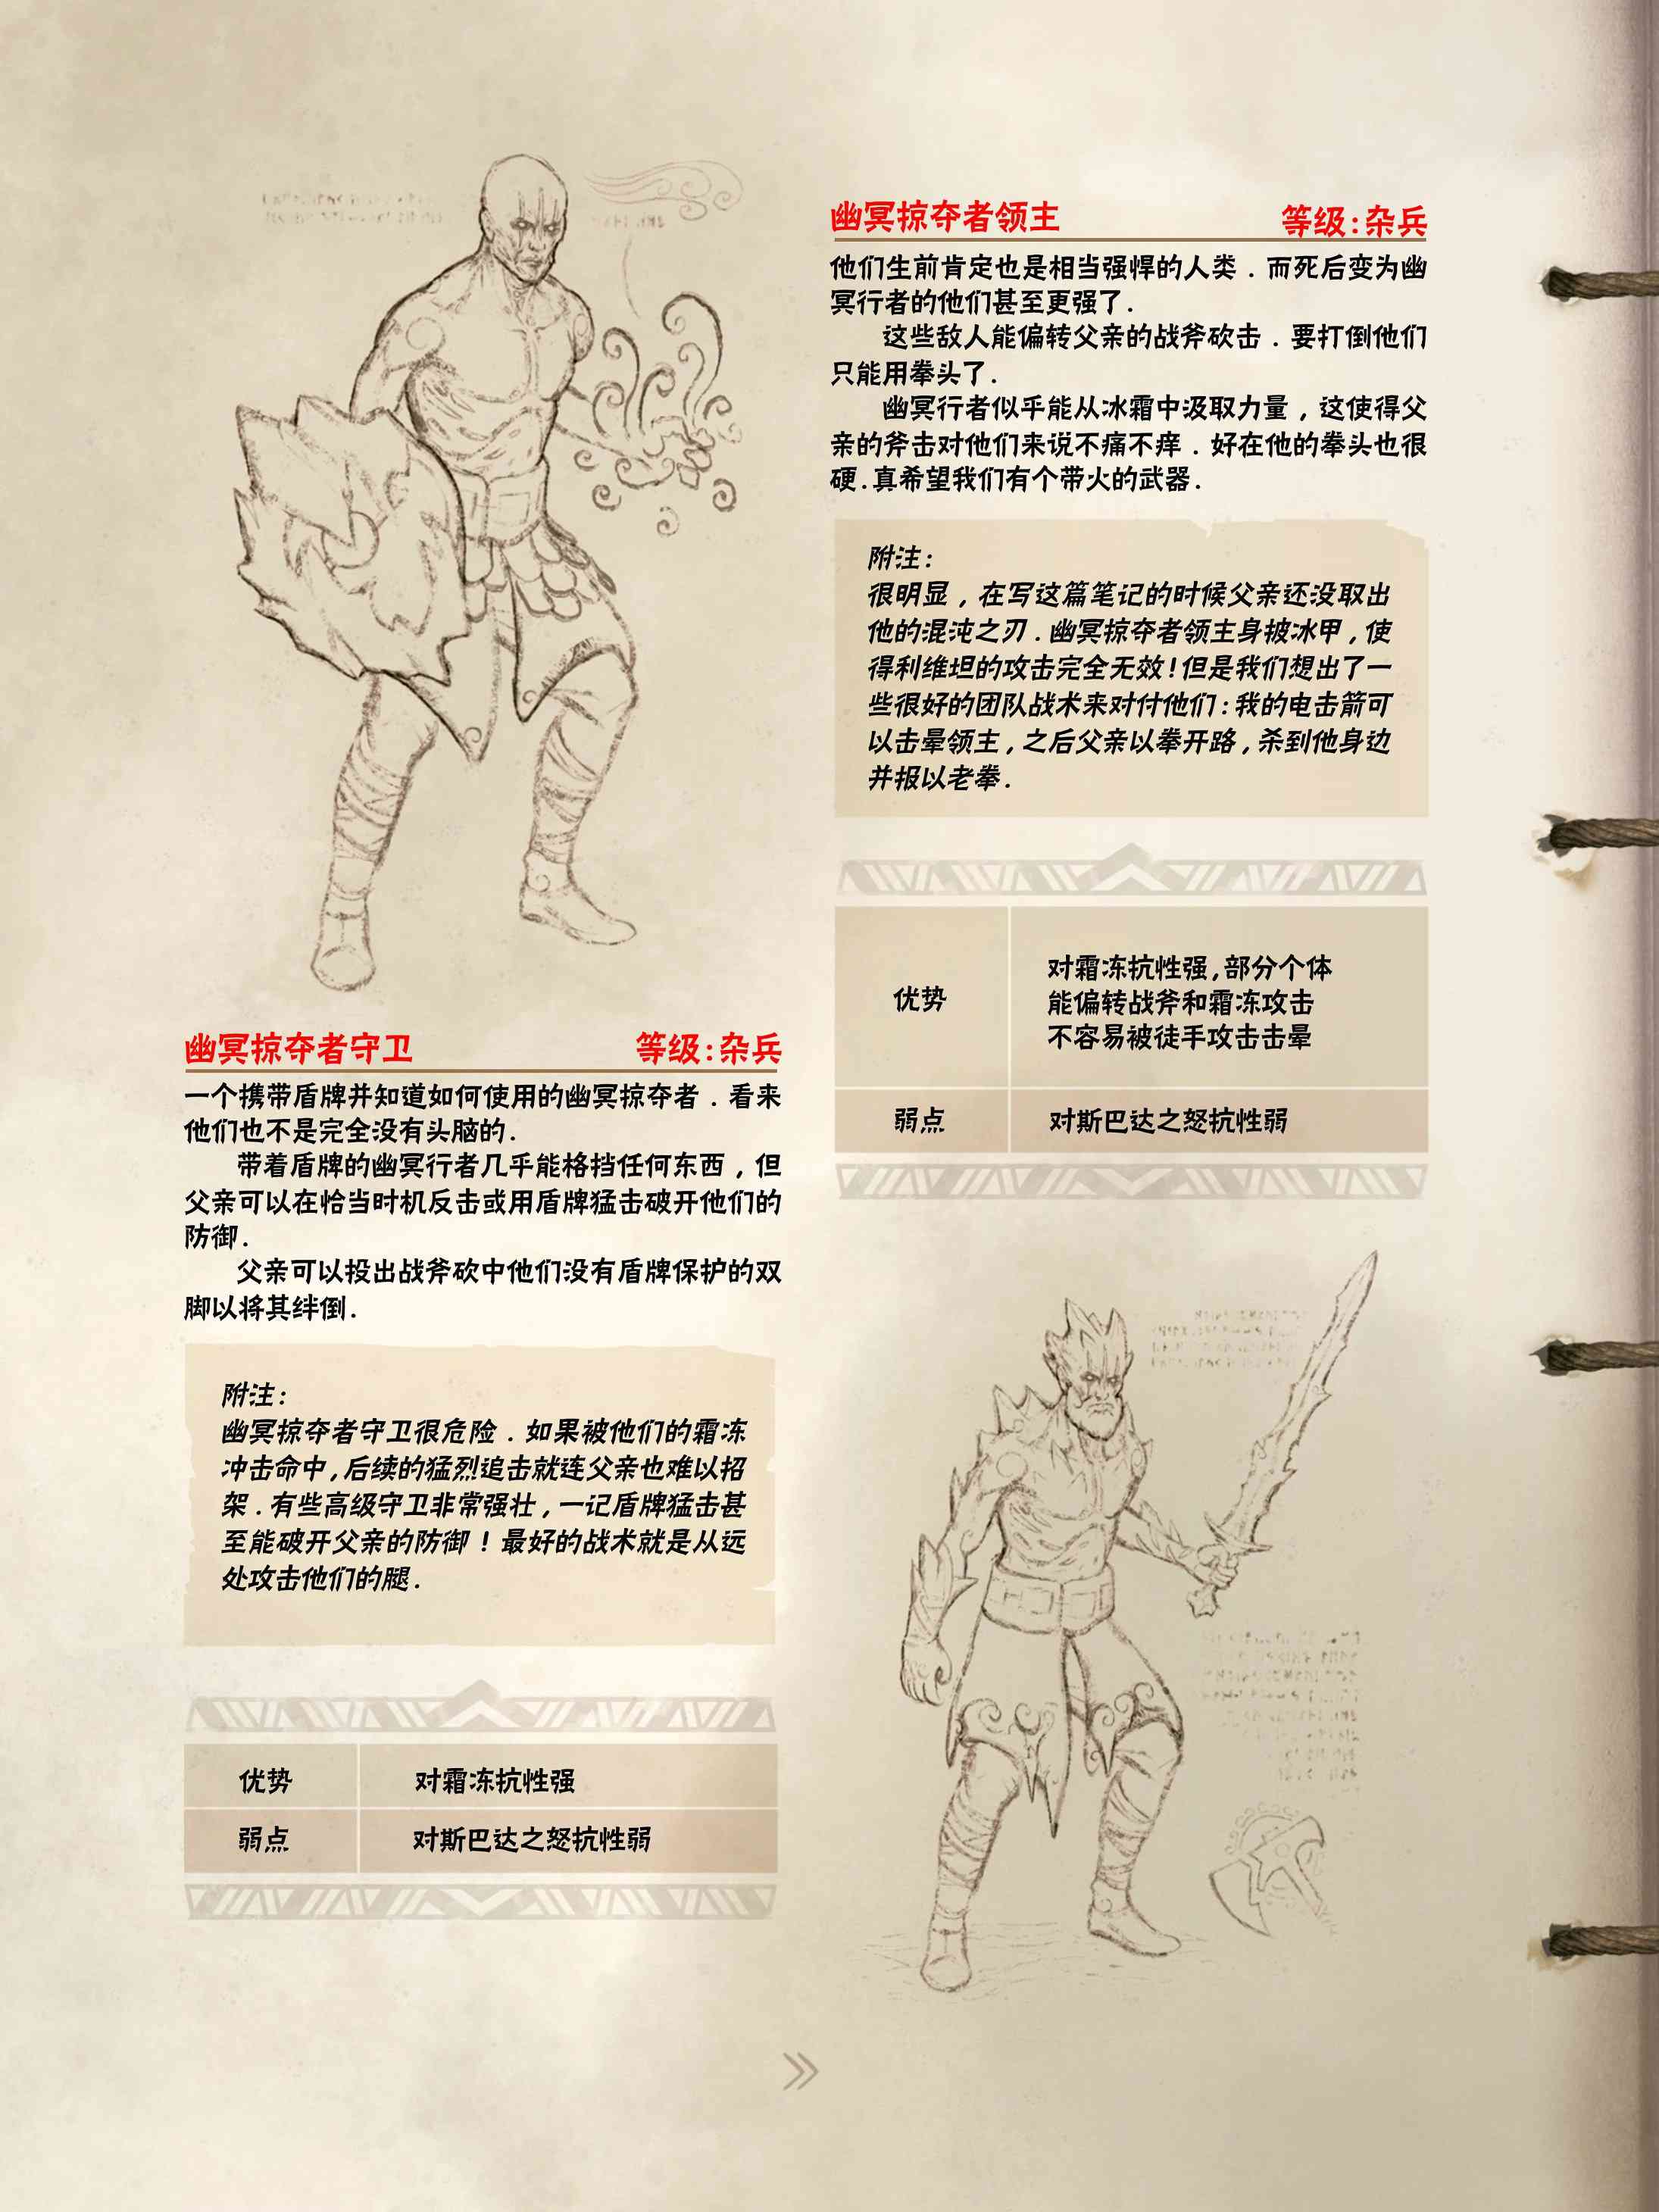 幽冥掠夺者守卫 等级:杂兵
一个携带盾牌并知道如何使用的幽冥掠夺者.看来
他们也不是完全没有头脑的.
带着盾牌的幽冥行者几乎能格挡任何东西,但
父亲可以在恰当时机反击或用盾牌猛击破开他们的
防御.
父亲可以投出战斧砍中他们没有盾牌保护的双
脚以将其绊倒.
附注:
幽冥掠夺者守卫很危险.如果被他们的霜冻
冲击命中,后续的猛烈追击就连父亲也难以招
架.有些高级守卫非常强壮,一记盾牌猛击甚
至能破开父亲的防御!最好的战术就是从远
处攻击他们的腿.
优势 对霜冻抗性强
弱点 对斯巴达之怒抗性弱
幽冥掠夺者领主 等级:杂兵
他们生前肯定也是相当强悍的人类.而死后变为幽
冥行者的他们甚至更强了.
这些敌人能偏转父亲的战斧砍击.要打倒他们
只能用拳头了.
幽冥行者似乎能从冰霜中汲取力量,这使得父
亲的斧击对他们来说不痛不痒.好在他的拳头也很
硬.真希望我们有个带火的武器.
附注:
很明显,在写这篇笔记的时候父亲还没取出
他的混沌之刃.幽冥掠夺者领主身披冰甲,使
得利维坦的攻击完全无效!但是我们想出了一
些很好的团队战术来对付他们:我的电击箭可
以击晕领主,之后父亲以拳开路,杀到他身边
并报以老拳.
优势
对霜冻抗性强,部分个体
能偏转战斧和霜冻攻击
不容易被徒手攻击击晕
弱点 对斯巴达之怒抗性弱